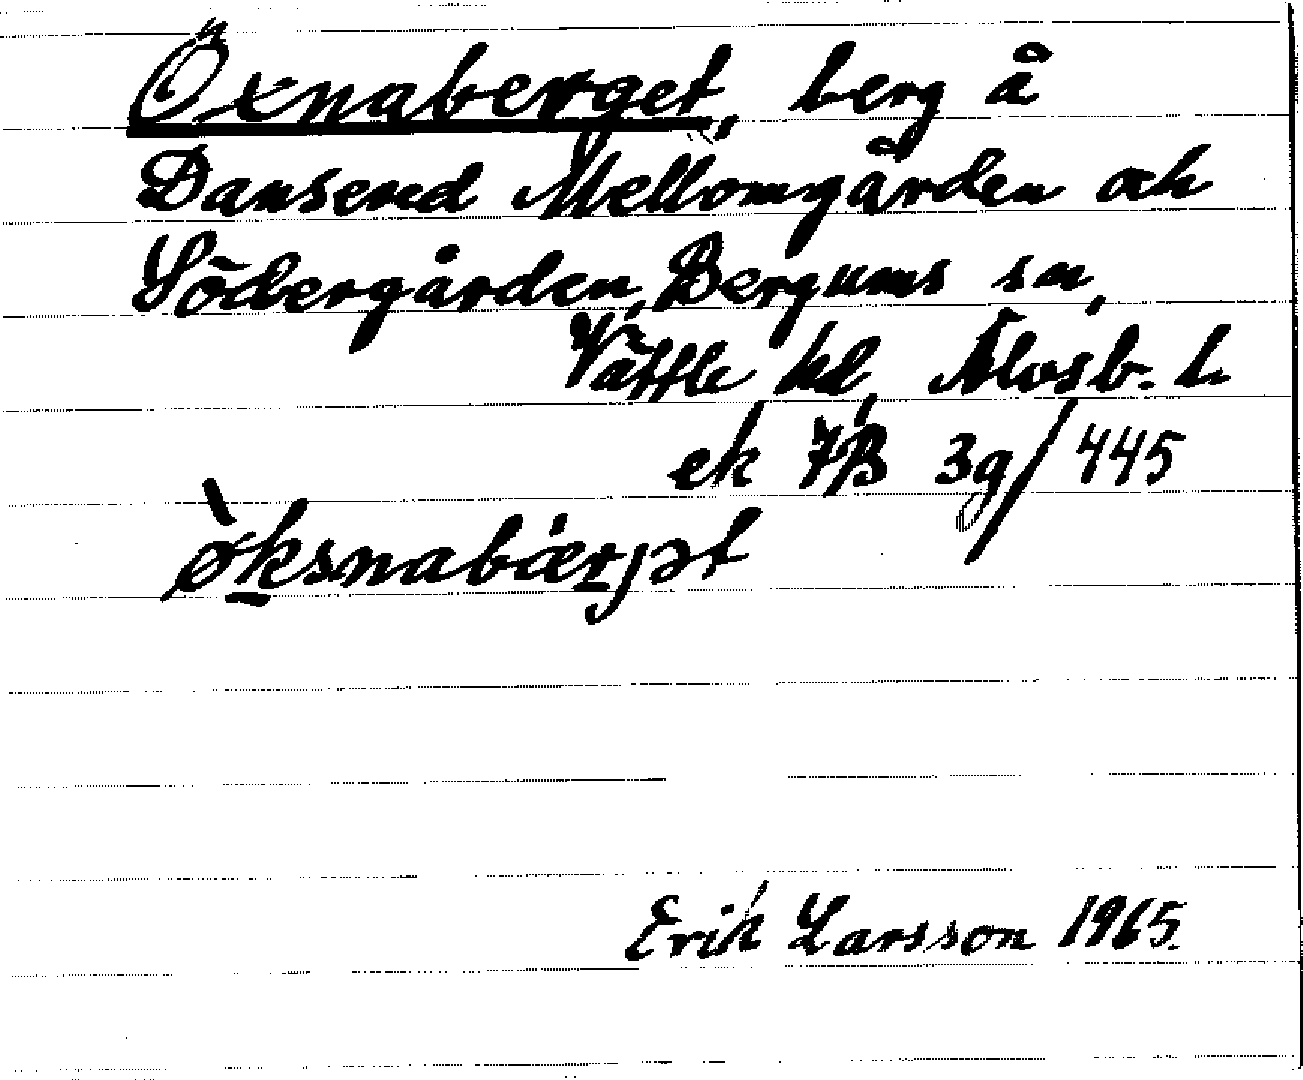 Öxnaberget, berg å
Dansered Mellomgården och
Södergården, Bergums sn,
Vättle hd, Älvsb. l.
ek 7B 3g/445
øksnabærjət
Erik Larsson 1965.